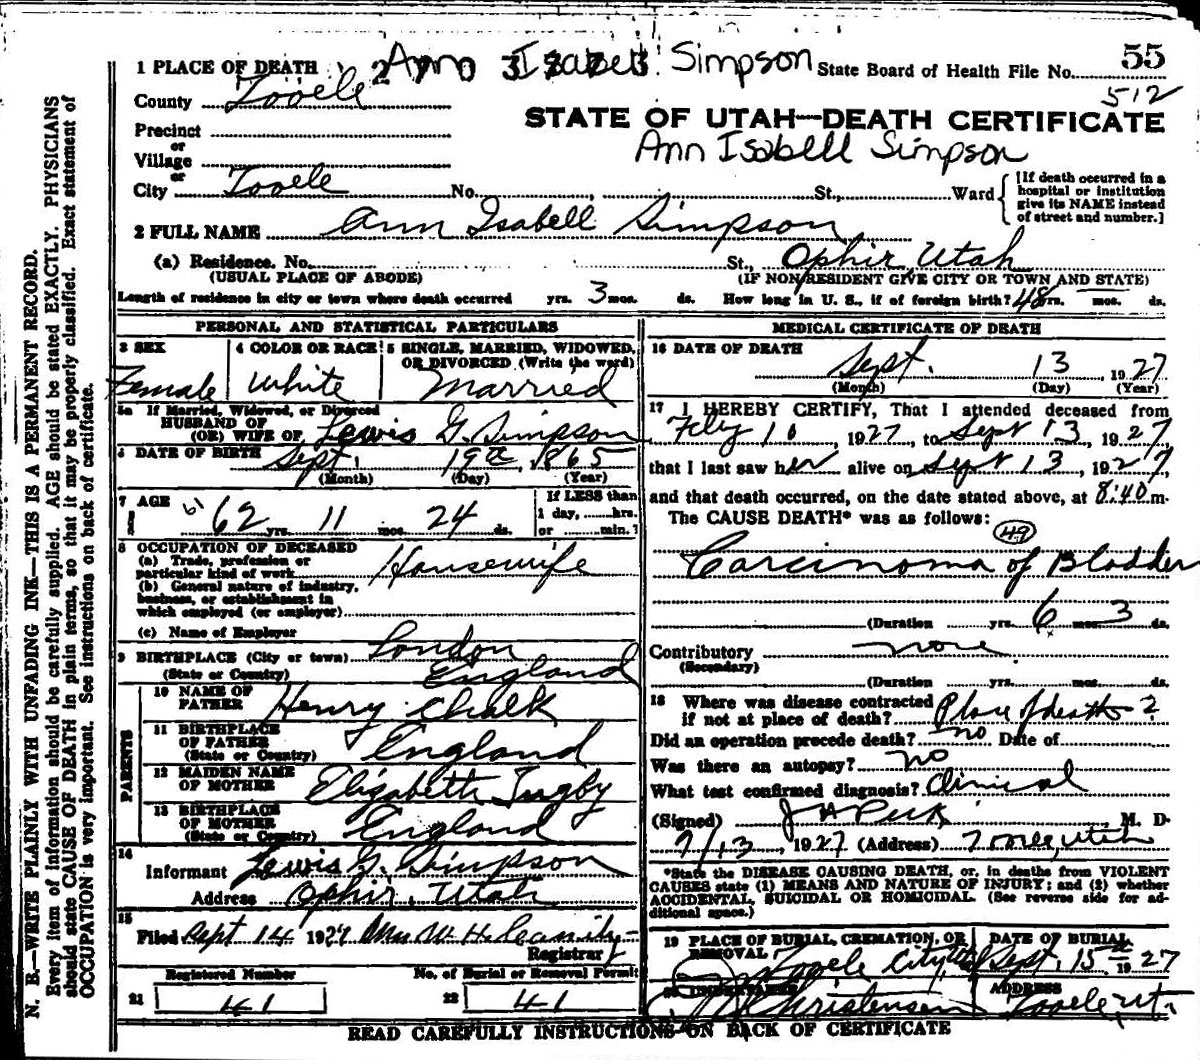 Ann Isabell Simpson
55
1 PLACE OF DEATH State Board of Health File No.
512
County Tooele
STATE OF UTAH—DEATH CERTIFICATE
Precinct
Ann Isabell Simpson
or
Village
or
City Tooele No. St., Ward
[If death occurred in a
hospital or institution
give its NAME instead
of street and number.]
2 FULL NAME Ann Isabell Simpson
(a) Residence. No. St., Ophir, Utah
(USUAL PLACE OF ABODE) (IF NON RESIDENT GIVE CITY OR TOWN AND STATE)
Length of residence in city or town where death occurred yrs. 3 mos. ds. How long in U. S., if of foreign birth? 48 yrs. mos. ds.
PERSONAL AND STATISTICAL PARTICULARS
3 SEX 4 COLOR OR RACE 5 SINGLE, MARRIED, WIDOWED,
OR DIVORCED (Write the word)
Female White Married
5a If Married, Widowed, or Divorced
HUSBAND OF
(OR) WIFE OF Lewis G. Simpson
6 DATE OF BIRTH Sept. 19th, 1865
(Month) (Day) (Year)
7 AGE 61 62 yrs. 11 mos. 24 ds.
If LESS than
1 day, hrs.
or min.?
8 OCCUPATION OF DECEASED
(a) Trade, profession or
particular kind of work Housewife
(b) General nature of industry,
business, or establishment in
which employed (or employer)
(c) Name of Employer
9 BIRTHPLACE (City or town) London
(State or Country) England
PARENTS
10 NAME OF
FATHER Henry Chalk
11 BIRTHPLACE
OF FATHER England
(State or Country)
12 MAIDEN NAME
OF MOTHER Elizabeth
13 BIRTHPLACE
OF MOTHER England
(State or Country)
14
Informant Lewis G. Simpson
Address Ophir, Utah
15
Filed Sept 14 1927 Mrs W. H.
Registrar
Registered Number No. of Burial or Removal Permit
21 41 22 41
MEDICAL CERTIFICATE OF DEATH
16 DATE OF DEATH Sept. 13 1927
(Month) (Day) (Year)
17 I HEREBY CERTIFY, That I attended deceased from
1927, to Sept 13, 1927,
that I last saw her alive on Sept 13, 1927
and that death occurred, on the date stated above, at 8:40 m.
The CAUSE DEATH* was as follows:
49
Carcinoma of Bladder
(Duration yrs. 6 mos. 3 ds.
Contributory none
(Secondary)
(Duration yrs. mos. ds.
18 Where was disease contracted
if not at place of death? Place of death?
Did an operation precede death? no Date of
Was there an autopsy? no
What test confirmed diagnosis? Clinical
(Signed) J A Peck M. D.
9/13, 1927 (Address) Tooele, Utah
*State the DISEASE CAUSING DEATH, or, in deaths from VIOLENT
CAUSES state (1) MEANS AND NATURE OF INJURY; and (2) whether
ACCIDENTAL, SUICIDAL OR HOMICIDAL. (See reverse side for ad-
ditional space.)
19 PLACE OF BURIAL, CREMATION, OR DATE OF BURIAL
REMOVAL
Tooele City Sept. 15th 1927
20 UNDERTAKER ADDRESS
Christensen Tooele, Ut.
READ CAREFULLY INSTRUCTIONS ON BACK OF CERTIFICATE
N. B.—WRITE PLAINLY WITH UNFADING INK—THIS IS A PERMANENT RECORD.
Every item of information should be carefully supplied. AGE should be stated EXACTLY. PHYSICIANS
should state CAUSE OF DEATH in plain terms, so that it may be properly classified. Exact statement of
OCCUPATION is very important. See instructions on back of certificate.